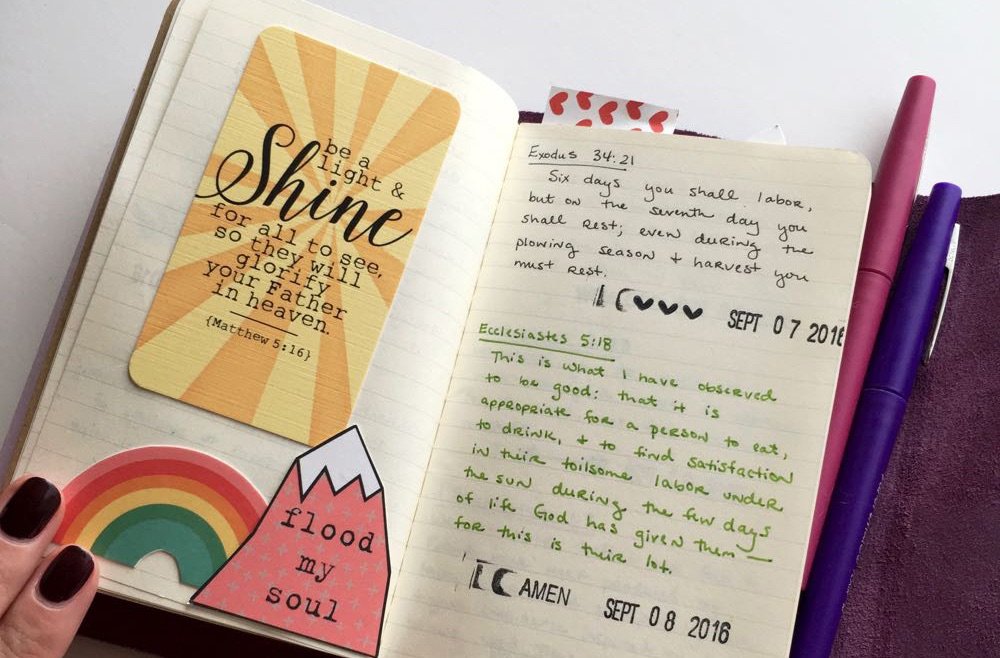 be a
light &
Shine
for all to see,
so they will
glorify
your Father
in heaven.
{Matthew 5:16}
flood
my
soul
Exodus 34:21
Six days you shall labor,
but on the seventh day you
shall rest; even during the
plowing season + harvest you
must rest.
SEPT 07 2016
Ecclesiastes 5:18
This is what I have observed
to be good: that it is
appropriate for a person to eat,
to drink, + to find satisfaction
in their toilsome labor under
the sun during the few days
of life God has given them —
for this is their lot.
AMEN
SEPT 08 2016